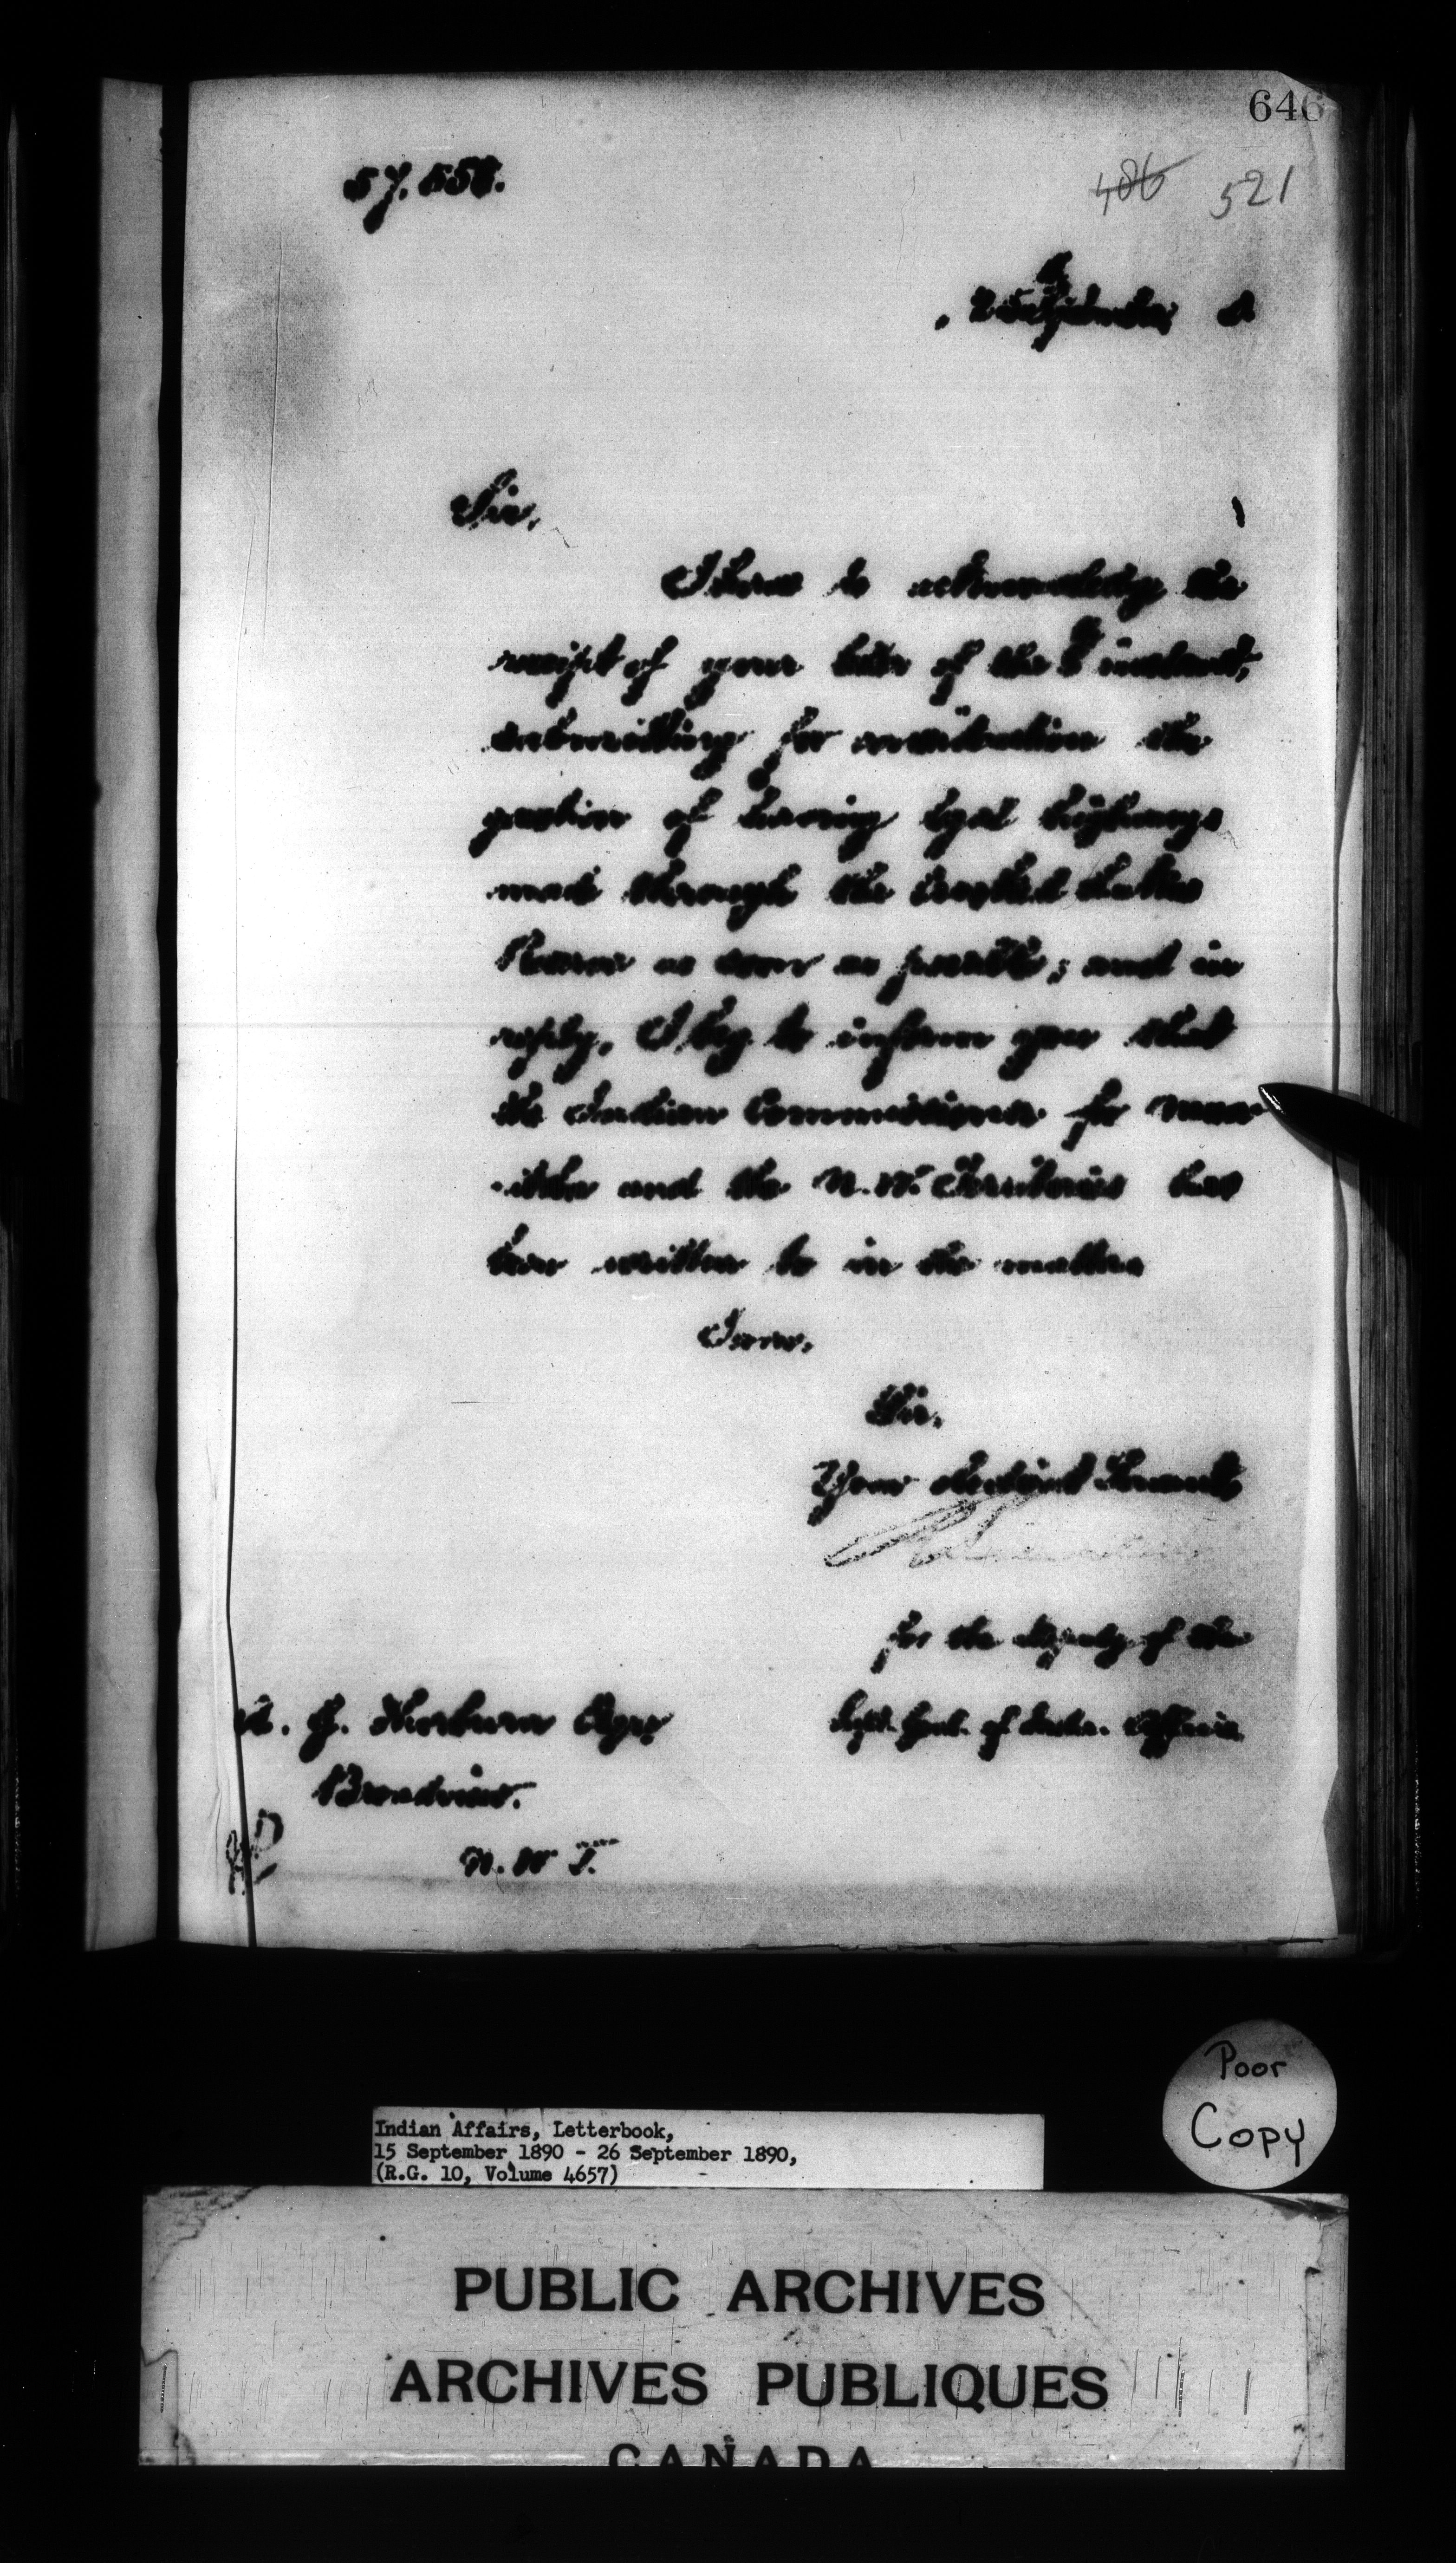 646
486 521
Sir,
I have to acknowledge the
receipt of your letter of the instant,
submitting for consideration the
question of having legal highways
made through the Crooked Lakes
Reserve as soon as possible; and in
reply, I beg to inform you that
the Indian Commissioner for Man
-itoba and the N.W. Territories has
been written to in the matter
I am,
Sir,
Your obedient Servant,
for the Deputy of the
Supt. Genl. of Indn. Affairs
Broadview.
N.W.T.
Poor
Copy
Indian Affairs, Letterbook,
15 September 1890 - 26 September 1890,
(R.G. 10, Volume 4657)
PUBLIC ARCHIVES
ARCHIVES PUBLIQUES
CANADA